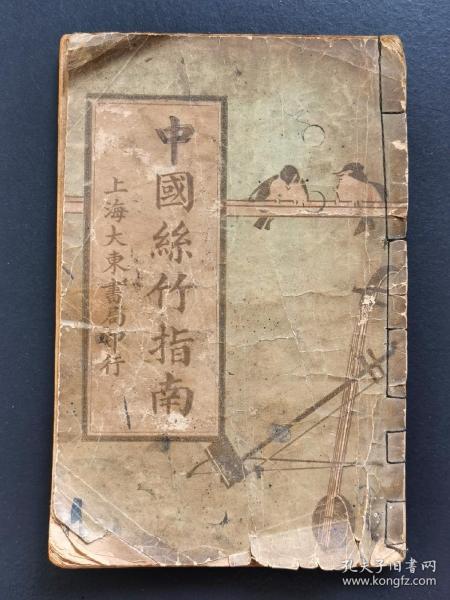 中國絲竹指南
上海大東書局印行
孔夫子旧书网
www.kongfz.com